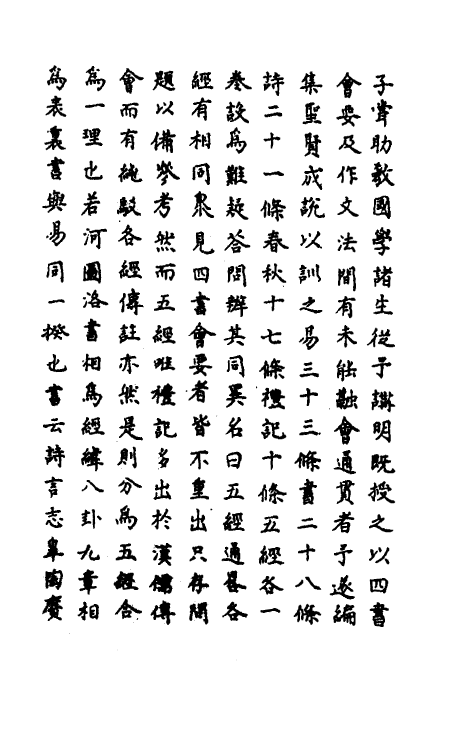 子嘗助教國學諸生從予講明既授之以四書
會要及作文法間有未能融會通貫者予遂編
集聖賢成說以訓之易三十三條書二十八條
詩二十一條春秋十七條禮記十條五經各一
卷設為難疑答問辨其同異名曰五經通畧各
經有相同衆見四書會要者皆不重出只存問
題以備參考然而五經唯禮記多出於漢儒傳
會而有純駁各經傳註亦然是則分為五經合
為一理也若河圖洛書相為經緯八卦九章相
為表裏書與易同一揆也書云詩言志皐陶賡